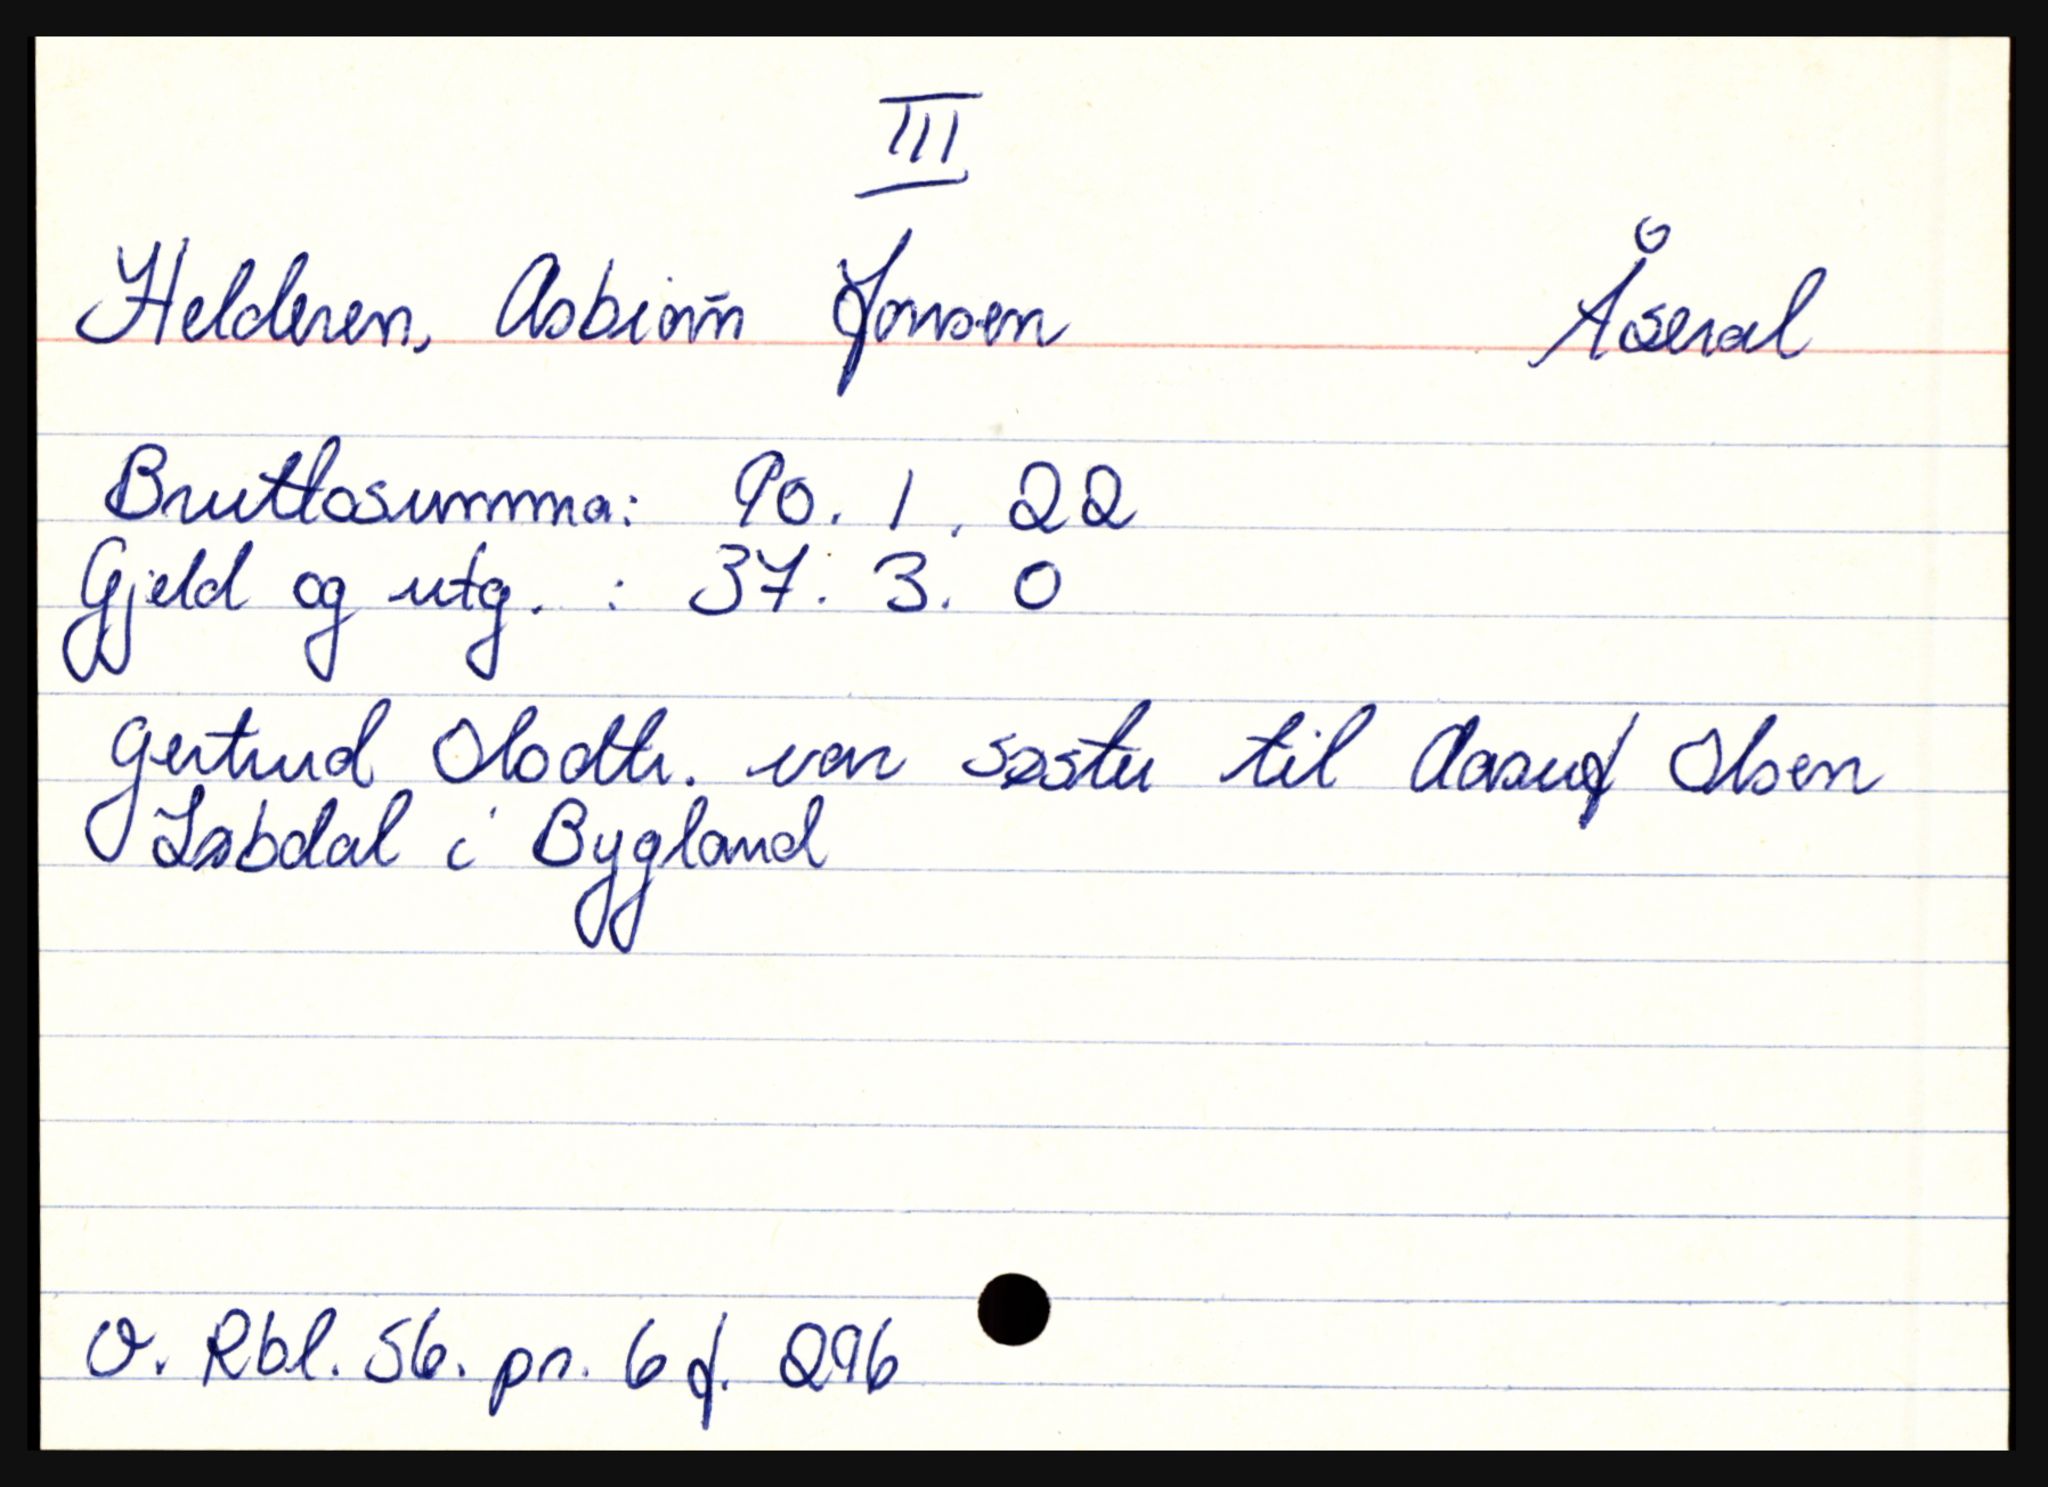 III
Helderen, Asbiørn Jonsen Åseral
Bruttosumma: 90. 1. 22
Gjeld og utg. : 37. 3. 0
Gertrud Olsdtr. var søster til Aasulf Olsen
Løbdal i Bygland
V. Rbl. 56. pr. 6 f. 296